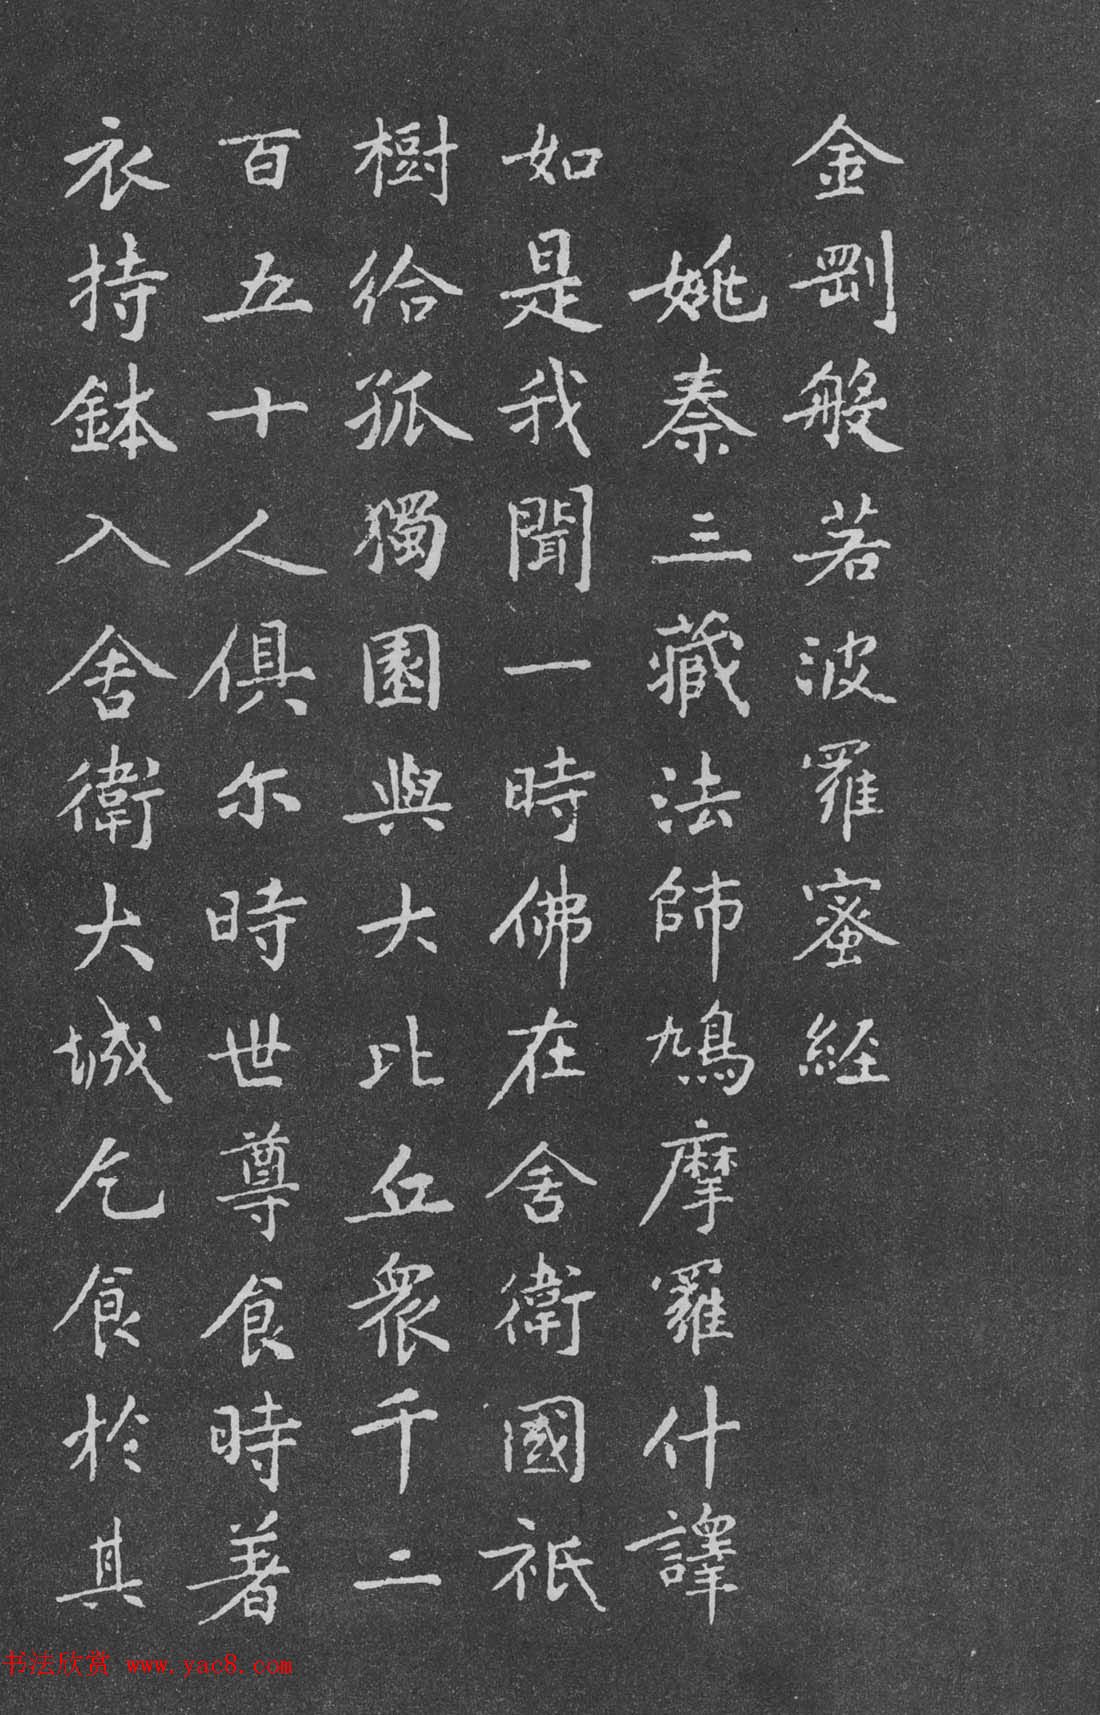 金剛般若波羅蜜經
姚秦三藏法師鳩摩羅什譯
如是我聞一時佛在舍衛國祇
樹給孤獨園與大比丘眾千二
百五十人俱尔時世尊食時著
衣持鉢入舍衛大城乞食於其
书法欣赏 www.yac8.com